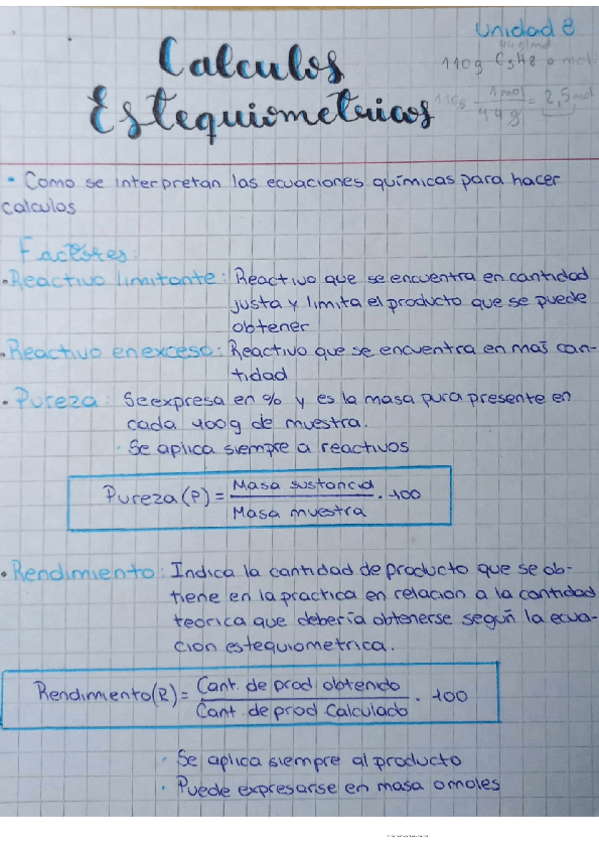 Unidad 8
Calculos
Estequiometricos
44g/mol
110g C3H8 a mol
110g 1mol / 44g = 2,5mol
• Como se interpretan las ecuaciones químicas para hacer
calculos
Factores:
• Reactivo limitante: Reactivo que se encuentra en cantidad
justa y limita el producto que se puede
obtener
• Reactivo en exceso: Reactivo que se encuentra en mas can-
tidad
• Pureza: Se expresa en % y es la masa pura presente en
cada 100g de muestra.
· Se aplica siempre a reactivos
Pureza (P) = Masa sustancia / Masa muestra · 100
• Rendimiento: Indica la cantidad de producto que se ob-
tiene en la practica en relacion a la cantidad
teorica que debería obtenerse según la ecua-
cion estequiometrica.
Rendimiento (R) = Cant. de prod obtenido / Cant. de prod Calculado · 100
· Se aplica siempre al producto
· Puede expresarse en masa o moles